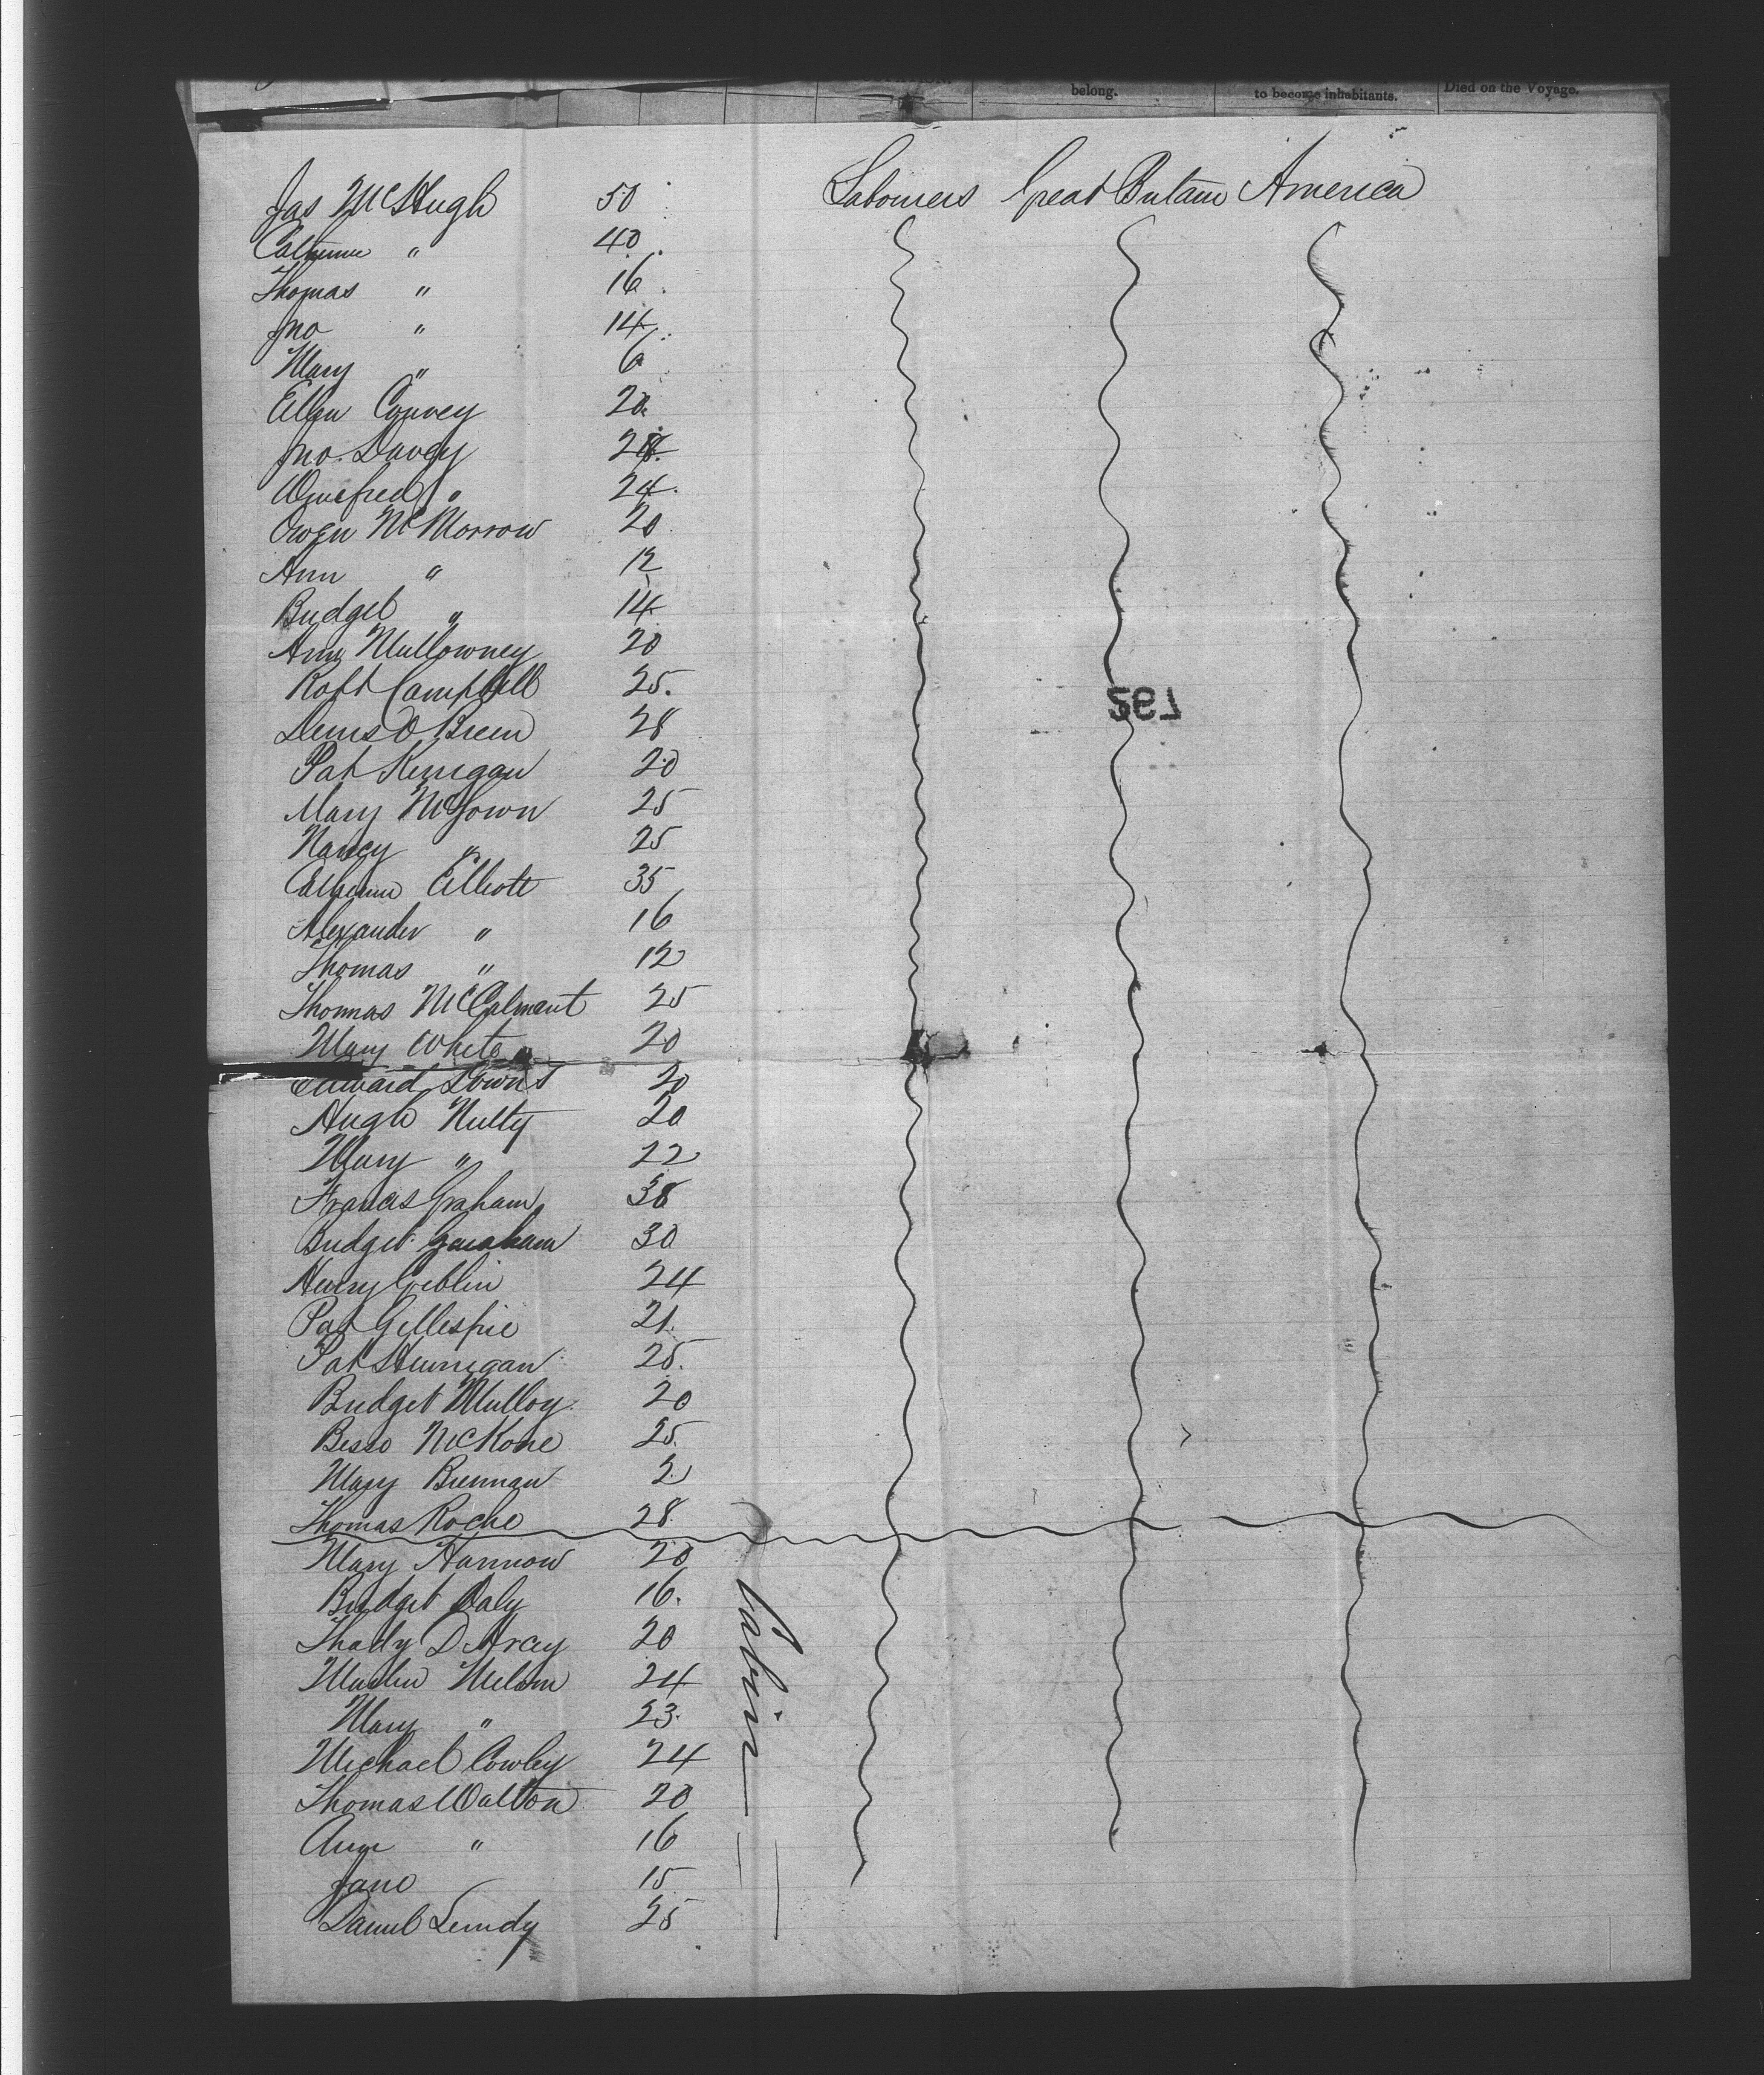 belong.
to become inhabitants.
Died on the Voyage.
Jas McHugh 50 Labourers Great Britain America
Catherine " 40
Thomas " 16
Jno " 14
Mary " 6
Ellen Convey 20
Jno Davey 28
Winefred " 24
Owen McMorrow 20
Ann " 12
Bridget " 14
Ann Mullowney 20
Robt Campbell 25
Denis O Brien 28
Pat Kerrigan 20
Mary McGown 25
Nancy " 25
Catherine Elliott 35
Alexander " 16
Thomas " 12
Thomas McCalmont 25
Mary White 20
Edward Downs 20
Hugh Nulty 20
Mary " 22
Francis Graham 38
Bridget Graham 30
Henry Giblin 24
Pat Gillespie 21
Pat Hunigan 25
Bridget Mulloy 20
Besse McKone 25
Mary Brennan 2
Thomas Roche 28
Mary Hannow 20
Bridget Daly 16
Thady D Arcy 20
Martin 24
Mary " 23
Michael Cowley 24
Thomas Walton 20
Ann " 16
Jane 15
Daniel 25
Cabin
297